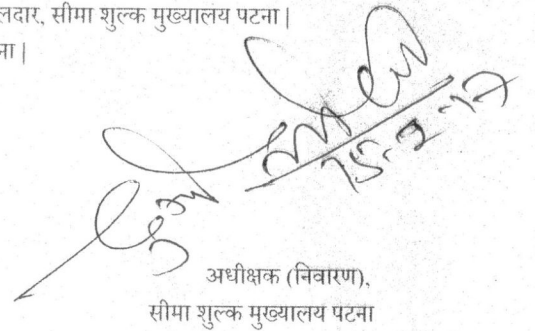 लदार, सीमा शुल्क मुख्यालय पटना|
ना|
अधीक्षक (निवारण),
सीमा शुल्क मुख्यालय पटना